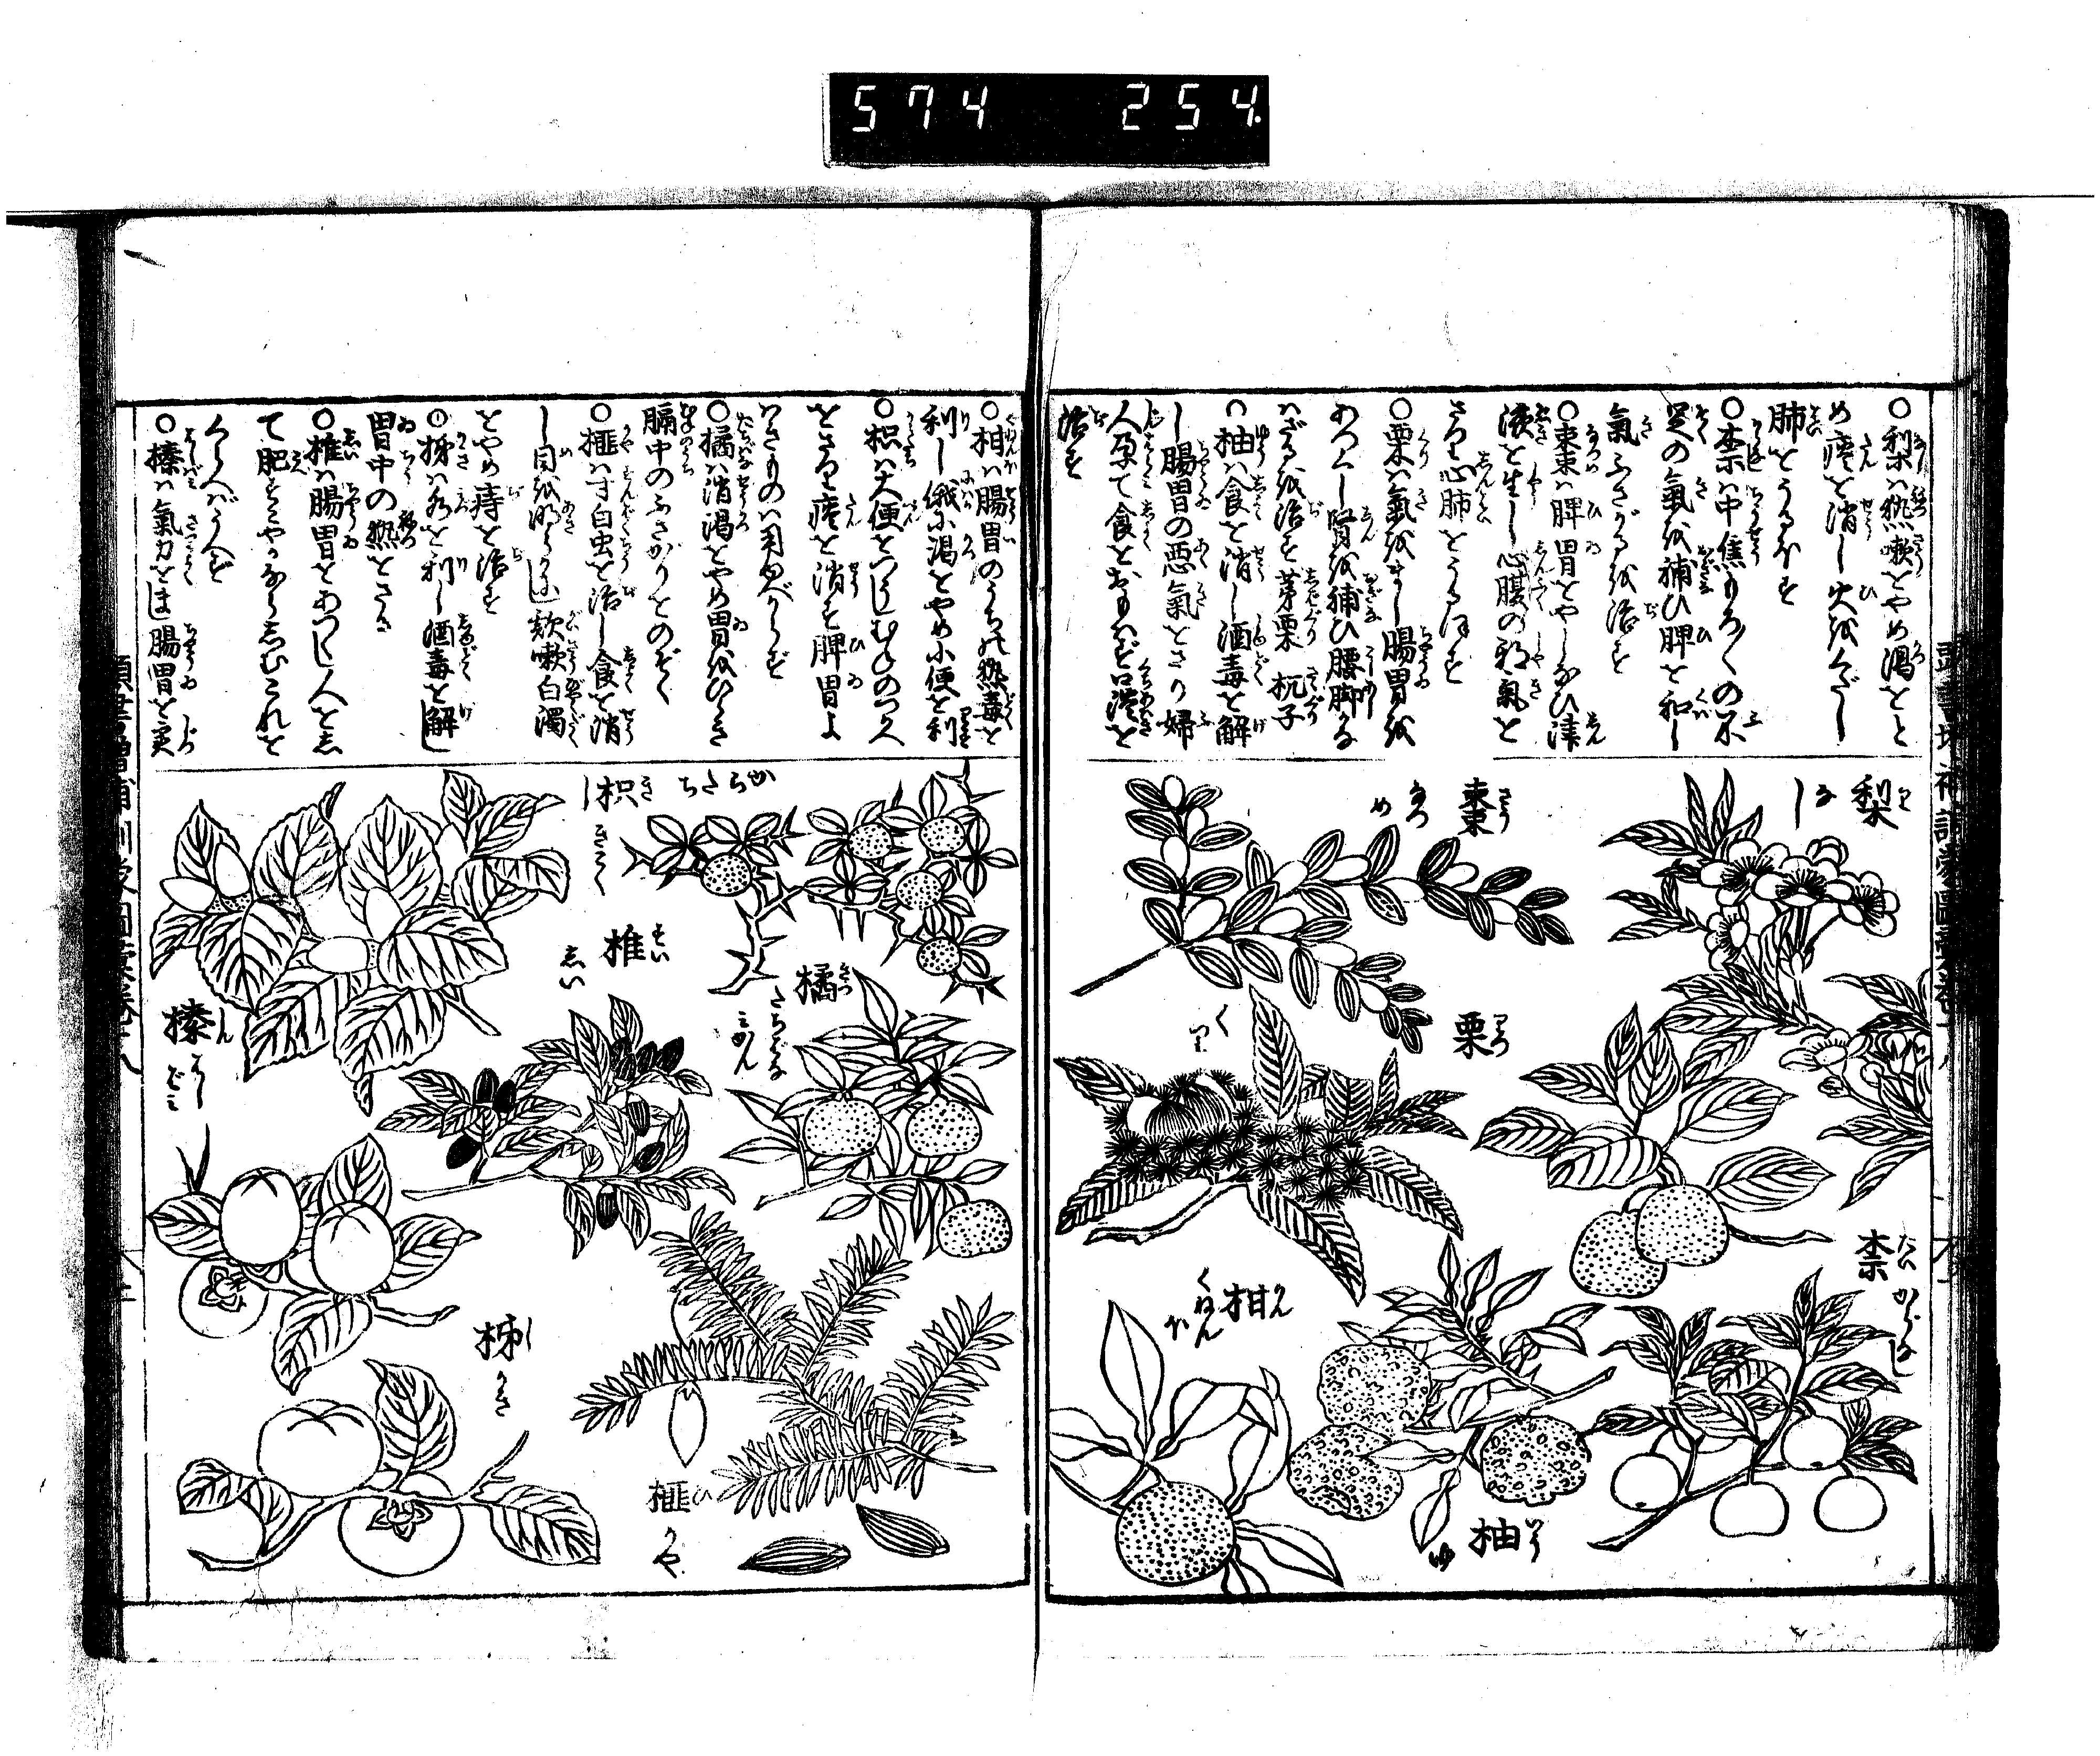 574 254.
○梨ハ熱嗽をやめ渇をと
め痰を消し火をくだし
肺をうるほす
○柰ハ中焦もろ〳〵の不
足の氣を補ひ脾を和し
氣ふさがるを治す
○棗ハ脾胃をやしなひ津
液を生し心腹の邪氣を
さり心肺をうるほす
○栗ハ氣をまし腸胃を
あつくし腎を補ひ腰脚な
ハざるを治す茅栗 杭子
○柚ハ食を消し酒毒を解
し腸胃の悪氣をさり婦
人孕て食をおもハず口淡を
治す
梨 り なし
棗 さう なつめ
栗 りつ くり
柰 だい からなし
柑 かん くねんぼ
柚 ゆう ゆ
○柑ハ腸胃のうちの熱毒を
利し俄に渇をやめ小便を利
○枳ハ大便をつうじむねのつかへ
をさり痰を消す脾胃よ
ハきものハ用ゆべからず
○橘ハ消渇をやめ胃をひらき
膈中のふさがりをのぞく
○榧ハ寸白虫を治し食を消
し目を明らかにし欬嗽白濁
をやめ痔を治す
○柹ハ水を利し酒毒を解し
胃中の熱をさる
○椎ハ腸胃をあつくし人をし
て肥すこやかならしむこれを
くらへバうへず
○榛ハ氣力をまし腸胃を実
枳 き からたち
きこく
椎 すい しい
橘 きつ たちばな
みかん
榛 しん はしばみ
柹 し かき
榧 ひ かや